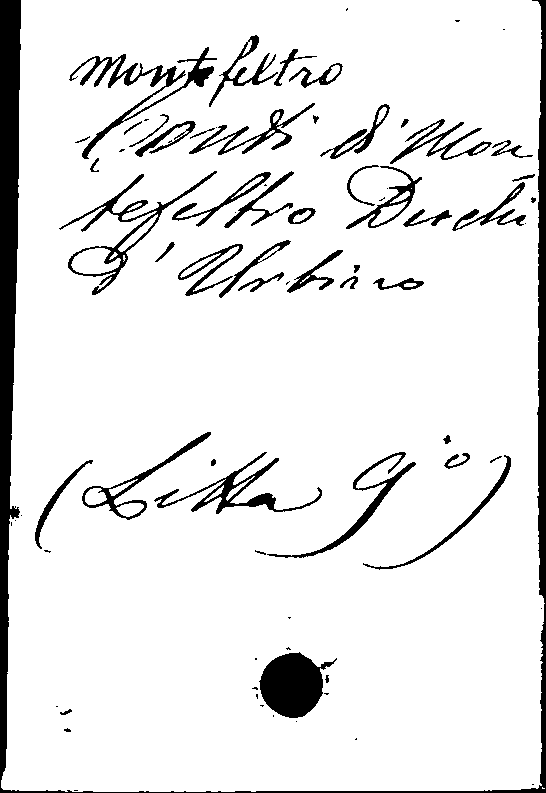 Montefeltro
Conti di Mon
tefeltro Duchi
d' Urbino
(Litta 9°)